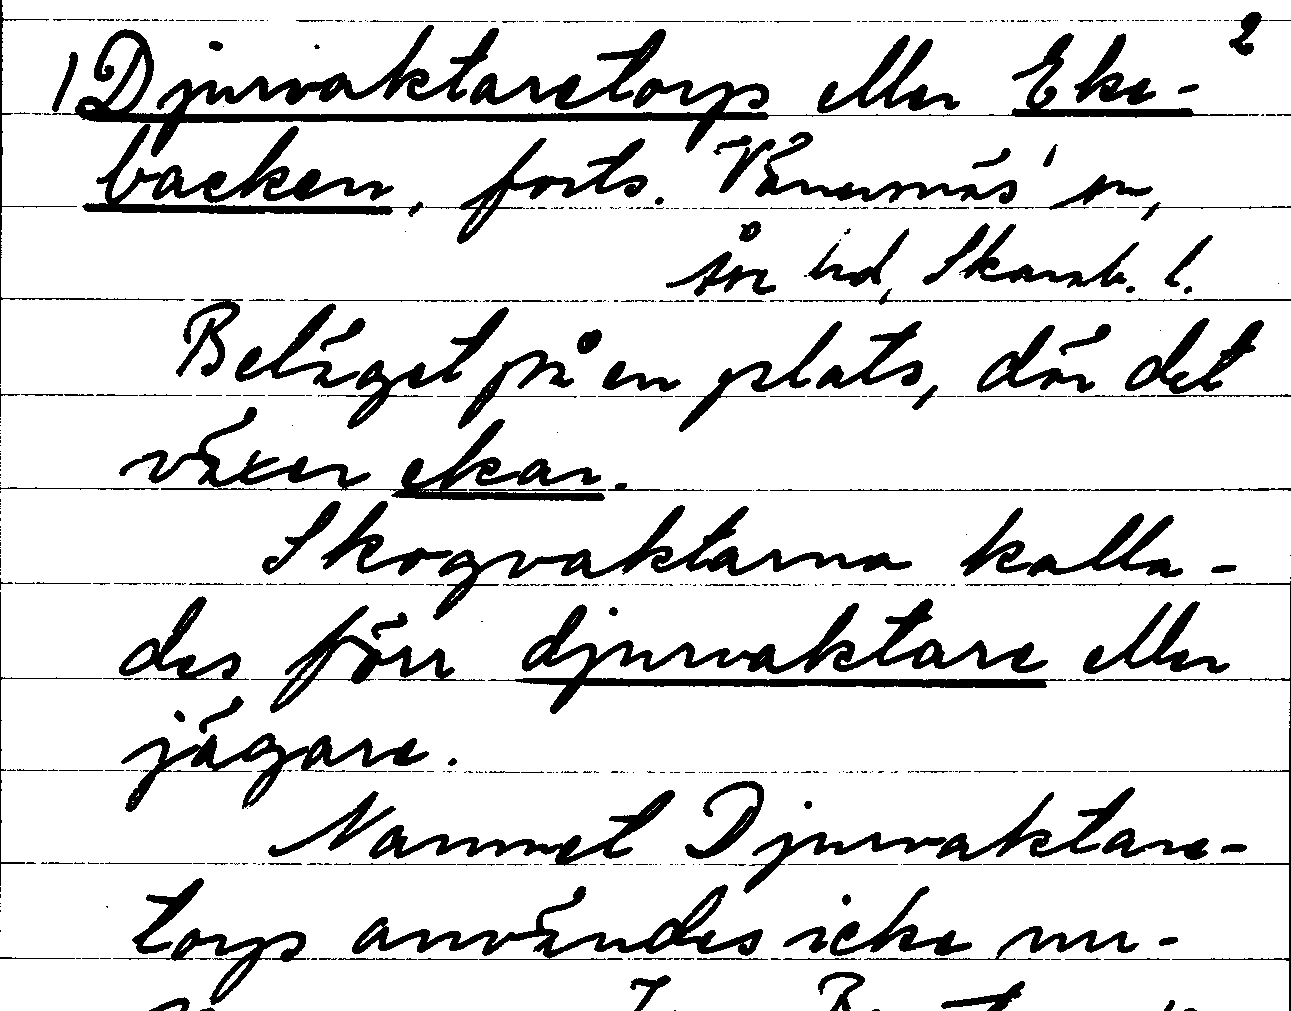 2
1) Djurvaktaretorp eller Eke-
backen, forts. Vånernäs' sn,
Åse hd, Skarab. l.
Beläget på en plats, där det
växer ekar.
Skogvaktarna kalla-
des förr djurvaktare eller
jägare.
Namnet Djurvaktare-
torp användes icke nu-